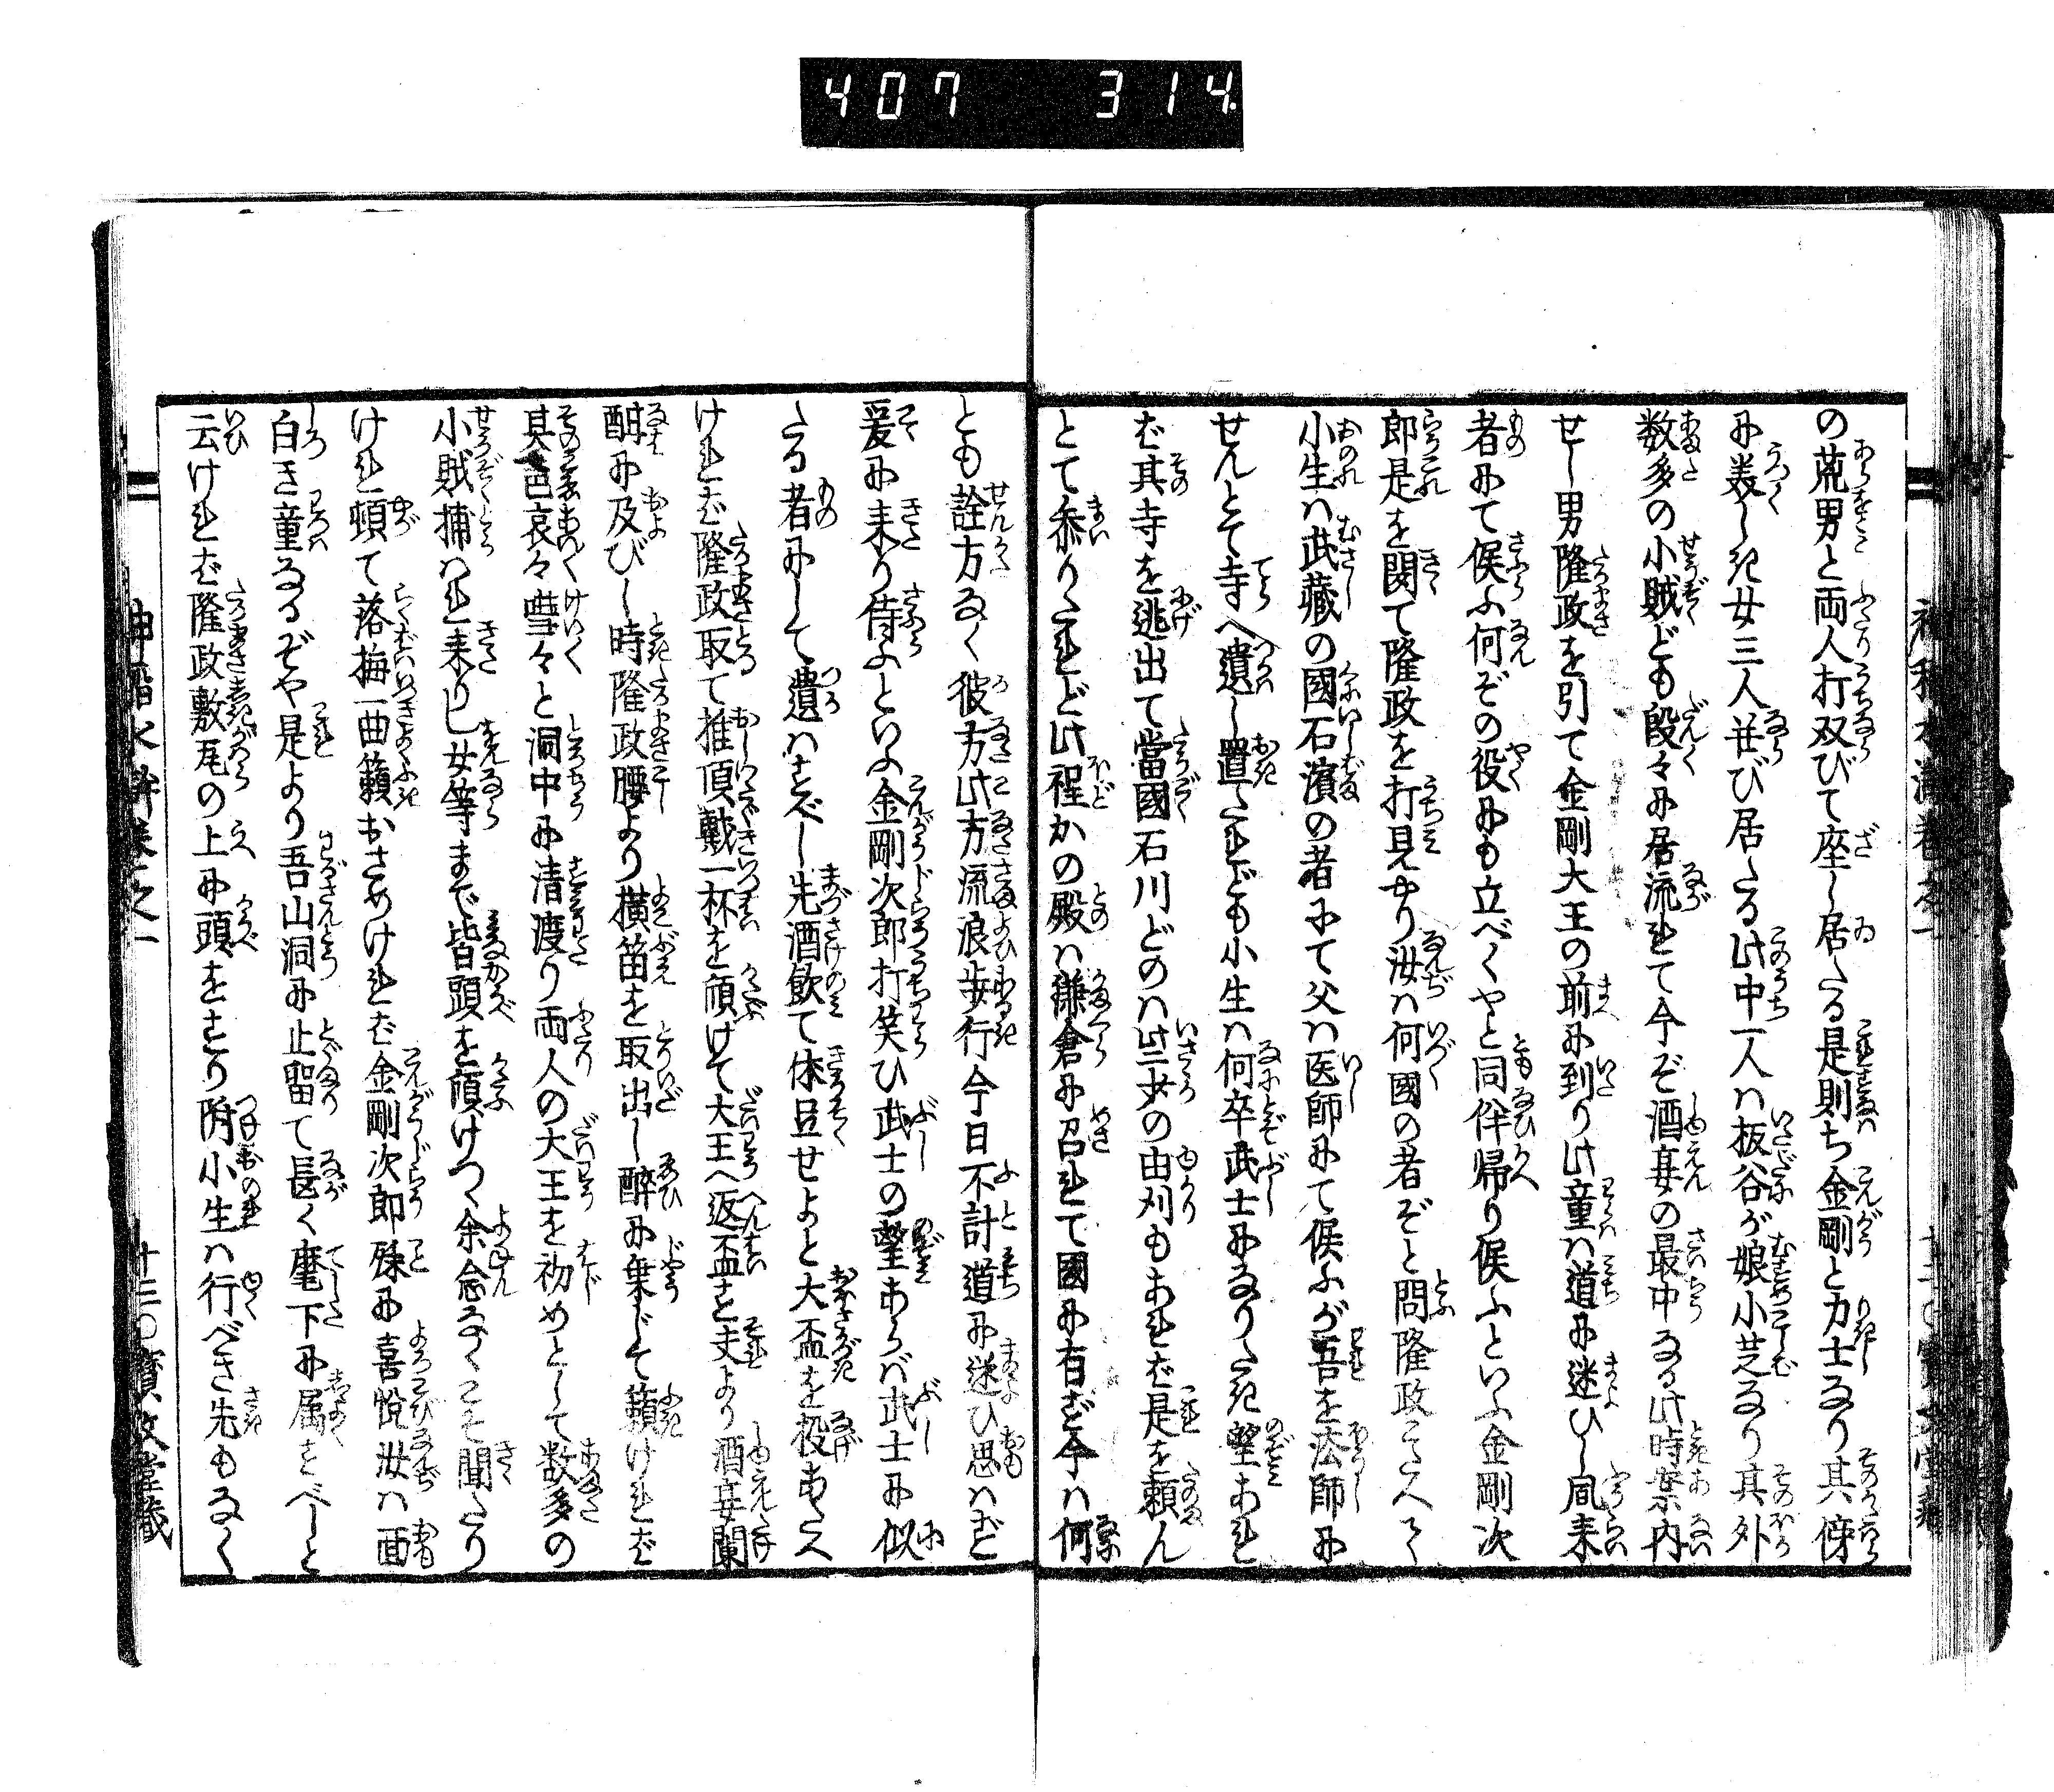 407 314
の荒男と両人打双びて座し居たる是則ち金剛と力士なり其傍
に美しき女三人並び居たる此中一人ハ扱谷が娘小芝なり其外
数多の小賊ども段々に居流れて今ぞ酒宴の最中なる此時案内
せし男隆政を引て金剛大王の前に到り此童ハ道に迷ひし風来
者にて候ふ何ぞの役にも立べくやと同伴帰り候ふといふ金剛次
郎是を聞て隆政を打見やり汝ハ何國の者ぞと問隆政こたへて
小生ハ武藏の國石濱の者にて父ハ医師にて候ふが吾を法師に
せんとて寺へ遣し置たれども小生ハ何卒武士になりたき望あれ
ば其寺を逃出て當國石川どのハ些少の由刈もあれば是を頼ん
とて参りたれど此程かの殿ハ鎌倉に召れて國に有ず今ハ何
とも詮方なく彼方此方流浪歩行今日不計道に迷ひ思ハず
爰に来り侍ふといふ金剛次郎打笑ひ武士の望あらバ武士に似
たる者にして遣ハすべし先酒飲て休息せよと大盃を投あたへ
けれど隆政取て推頂戴一杯を傾けて大王へ返盃す夫より酒宴闌
酣に及びし時隆政腰より横笛を取出し醉に乗じて籟けれど
其音哀々喨々と洞中に清渡り両人の大王を初めとして数多の
小賊捕ハれ来りし女等まで皆頭を傾けつゝ余念なくこそ聞たり
けれ頓て落梅一曲籟おさめけれど金剛次郎殊に喜悦汝ハ面
白き童なるぞや是より吾山洞に止留て長く麾下に属すべしと
云けれど隆政敷瓦の上に頭をすり附小生ハ行べき先もなく